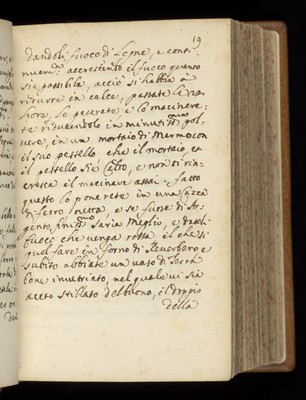 19
dandoli fuoco di legne, e conti-
nuam.te accrescendo il fuoco quanto
sia possibile, acciò si habbia à
ridurre in calce, passate le
hore, lo peserete e lo macinere-
te riducendolo in minutiss.ma pol-
vere, in un mortaio di Marmo con
il suo pestello che il mortaio, et
il pestello sia caldo, e non ti rin-
cresca il macinare assai. fatto
questo lo ponerete in una tazza
di ferro netta, e se fusse di Ar-
gento finiss.mo saria meglio, e dateli
fuoco che venga rossa il che si
può fare in forno di Reverbero e
subito abbiate un vaso di Terra
bene invetriato, nel quale vi sia
aceto stillato del buono, il doppio
della